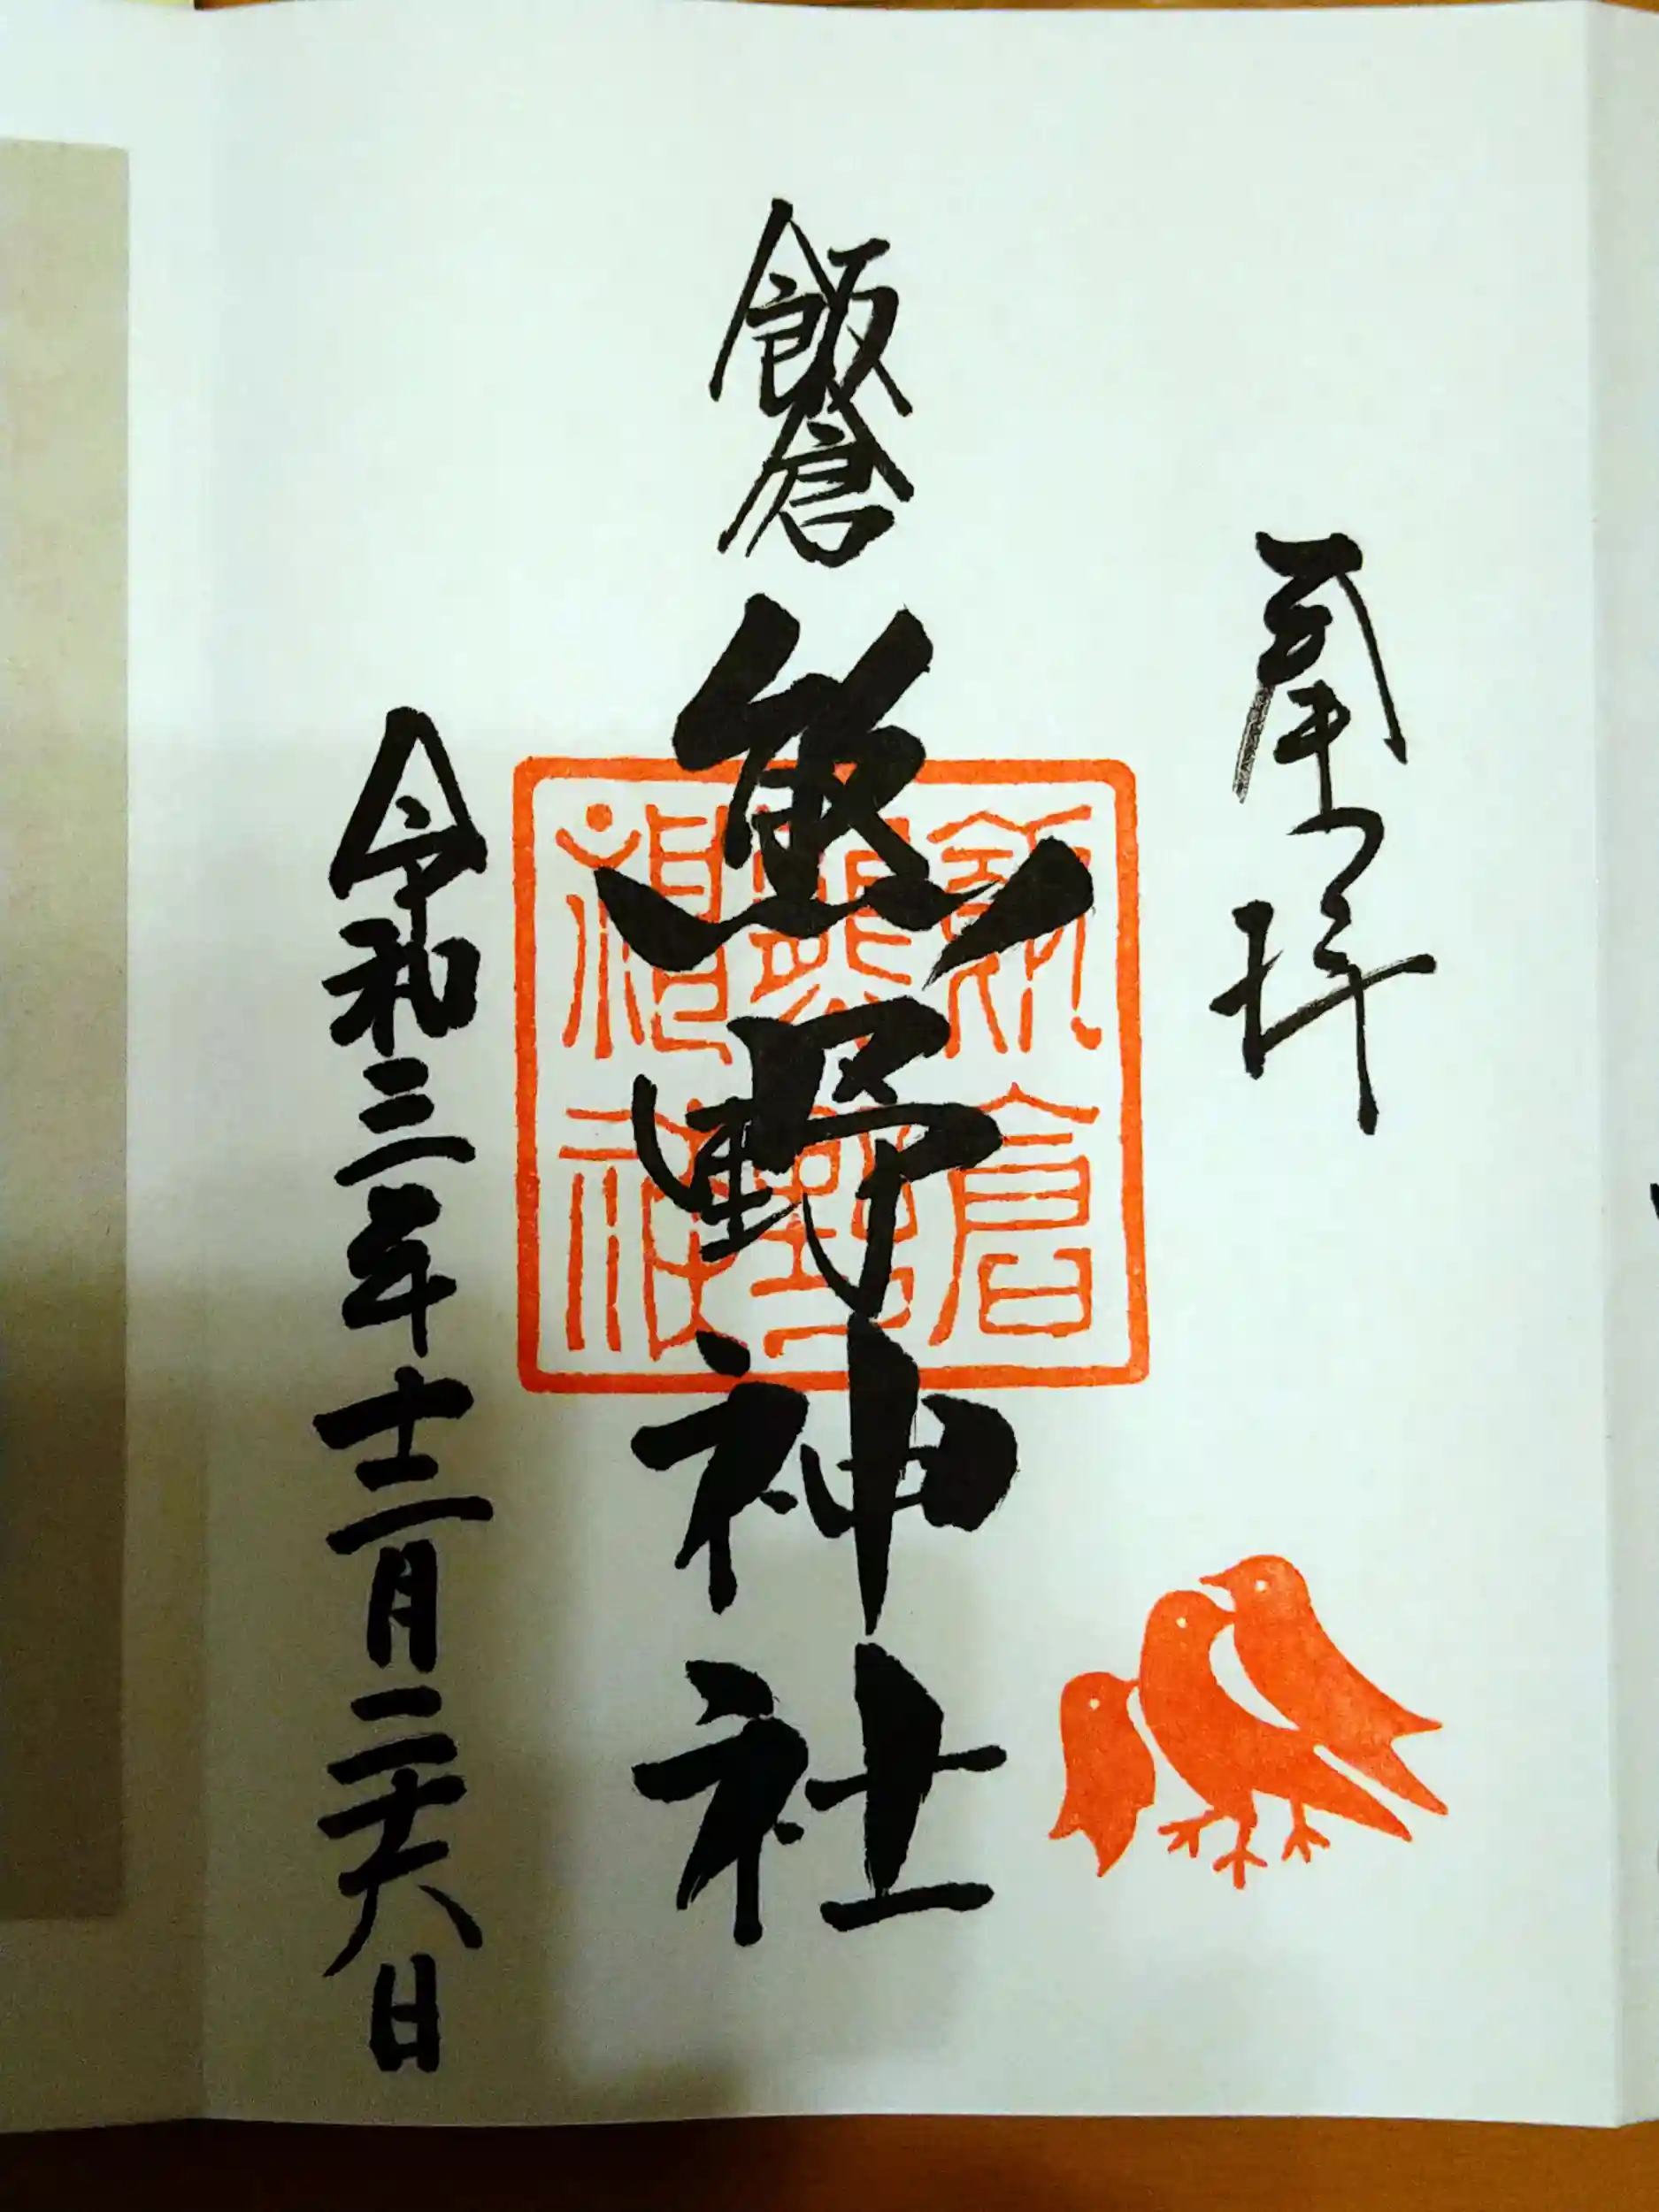 奉拝
飯倉
熊野神社
飯倉
熊野
神社
令和三年十二月二十八日